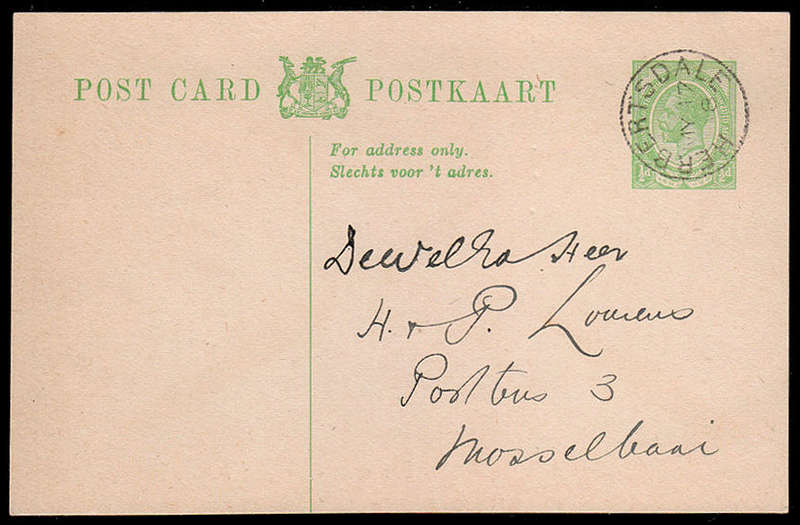 POST CARD POSTKAART
For address only.
Slechts voor 't adres.
HERBERTSDALE
½d ½d
Dewelka Heer
H. & P. Lourens
Postbus 3
Mosselbaai